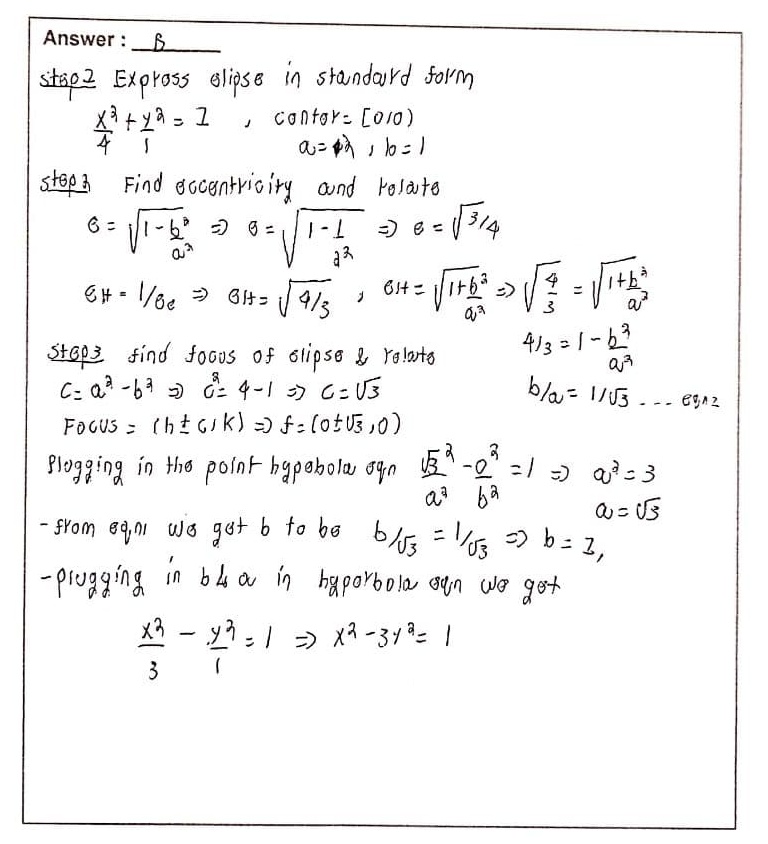 Answer : B
step 1 Express elipse in standard form
x²/4 + y²/1 = 1 , center = (0,0)
a = 2 , b = 1
step 2 Find eccentricity and relate
e = √(1 - b²/a²) ⇒ e = √(1 - 1/2²) ⇒ e = √3/4
eH = 1/ee ⇒ eH = √4/3 , eH = √(1+b²/a²) ⇒ √(4/3) = √(1+b²/a²)
4/3 = 1 - b²/a²
b/a = 1/√3 ... eqn 1
step 3 find focus of elipse & relate
c = a² - b² ⇒ c² = 4 - 1 ⇒ c = √3
Focus = (h ± c, k) ⇒ f = (0 ± √3, 0)
Plugging in the point hypebola eqn √3²/a² - 0²/b² = 1 ⇒ a² = 3
a = √3
- from eqn 1 we get b to be b/√3 = 1/√3 ⇒ b = 1,
- plugging in b & a in hyperbola eqn we get
x²/3 - y²/1 = 1 ⇒ x² - 3y² = 1